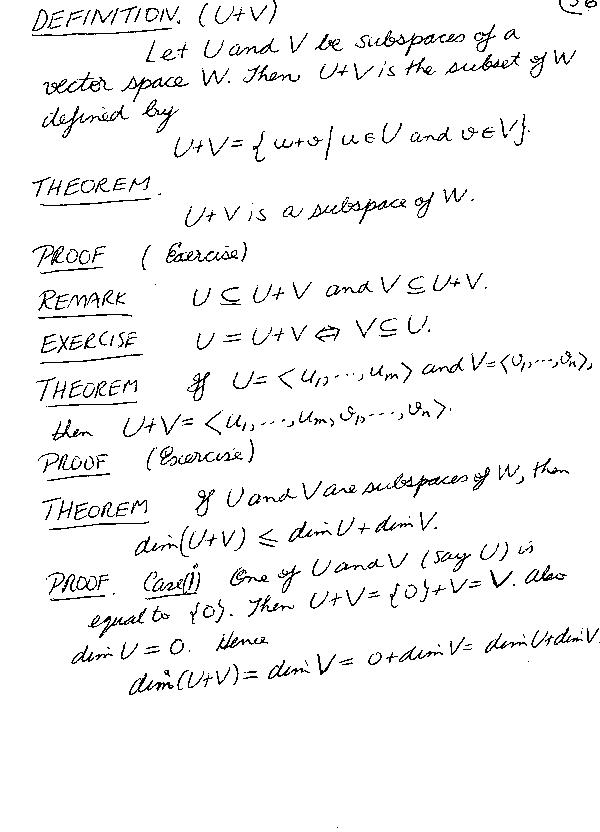 DEFINITION. (U+V)
Let U and V be subspaces of a
vector space W. Then U+V is the subset of W
defined by
U+V = { u+v | u ∈ U and v ∈ V}.
THEOREM.
U+V is a subspace of W.
PROOF (Exercise)
REMARK U ⊆ U+V and V ⊆ U+V.
EXERCISE U = U+V ⇔ V ⊆ U.
THEOREM If U = <u₁, ..., uₘ> and V = <v₁, ..., vₙ>,
then U+V = <u₁, ..., uₘ, v₁, ..., vₙ>.
PROOF (Exercise)
THEOREM If U and V are subspaces of W, then
dim(U+V) ≤ dim U + dim V.
PROOF. Case(i) One of U and V (say U) is
equal to {0}. Then U+V = {0}+V = V. Also
dim U = 0. Hence
dim(U+V) = dim V = 0 + dim V = dim U + dim V